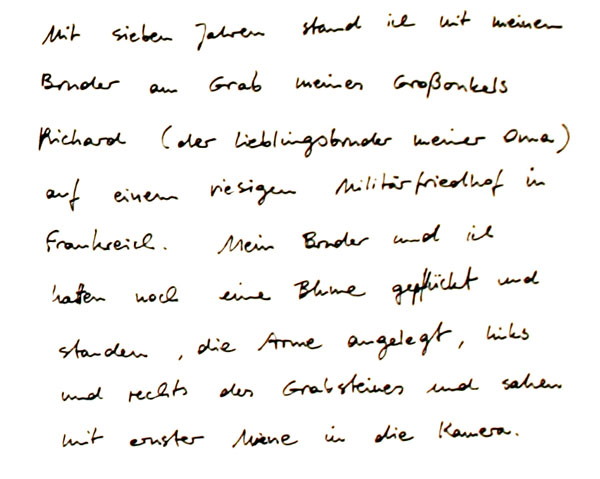 Mit sieben Jahren stand ich mit meinem
Bruder am Grab meines Großonkels
Richard (der Lieblingsbruder meiner Oma)
auf einem riesigen Militärfriedhof in
Frankreich. Mein Bruder und ich
hatten noch eine Blume gepflückt und
standen, die Arme angelegt, links
und rechts des Grabsteines und sahen
mit ernster Miene in die Kamera.